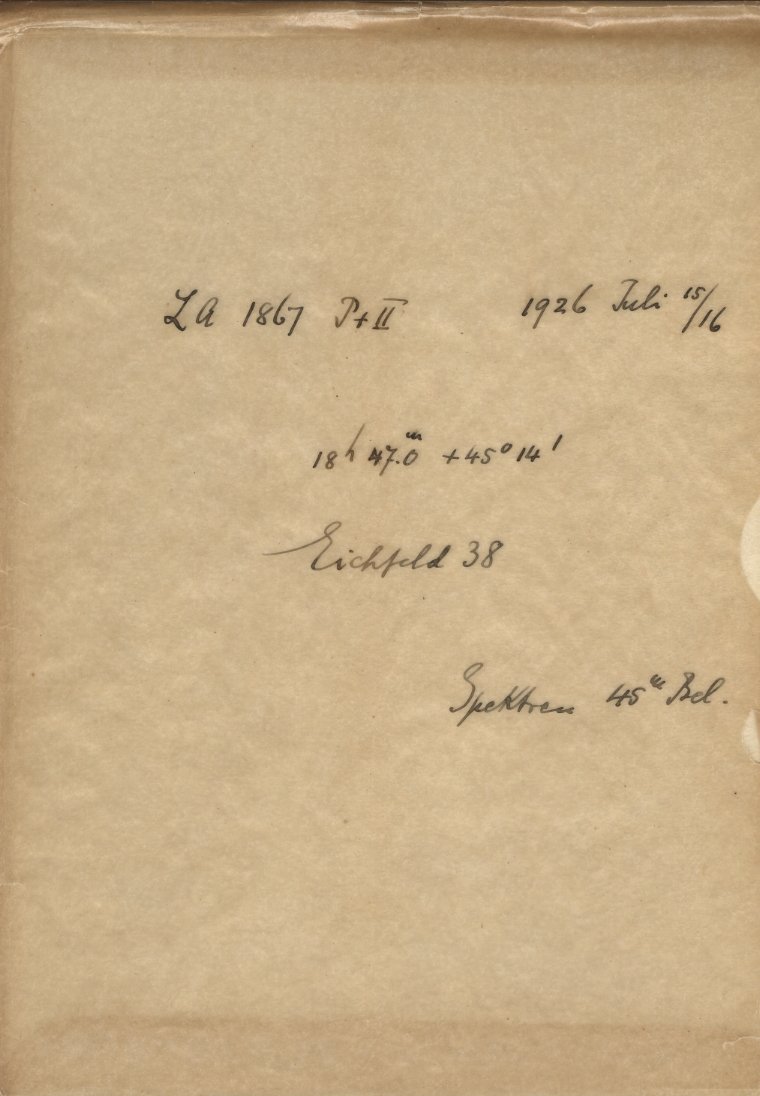 LA 1867 P+II 1926 Juli 15/16
18h 47.0m +45° 14'
Eichfeld 38
Spektren 45m Bel.